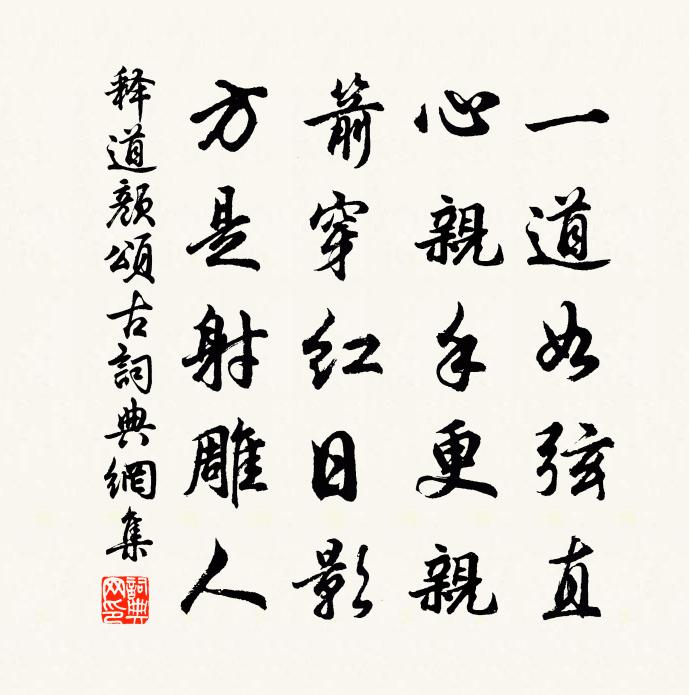 一道如弦直
心親手更親
箭穿紅日影
方是射雕人
释道颜頌古詞典網集
詞典網印